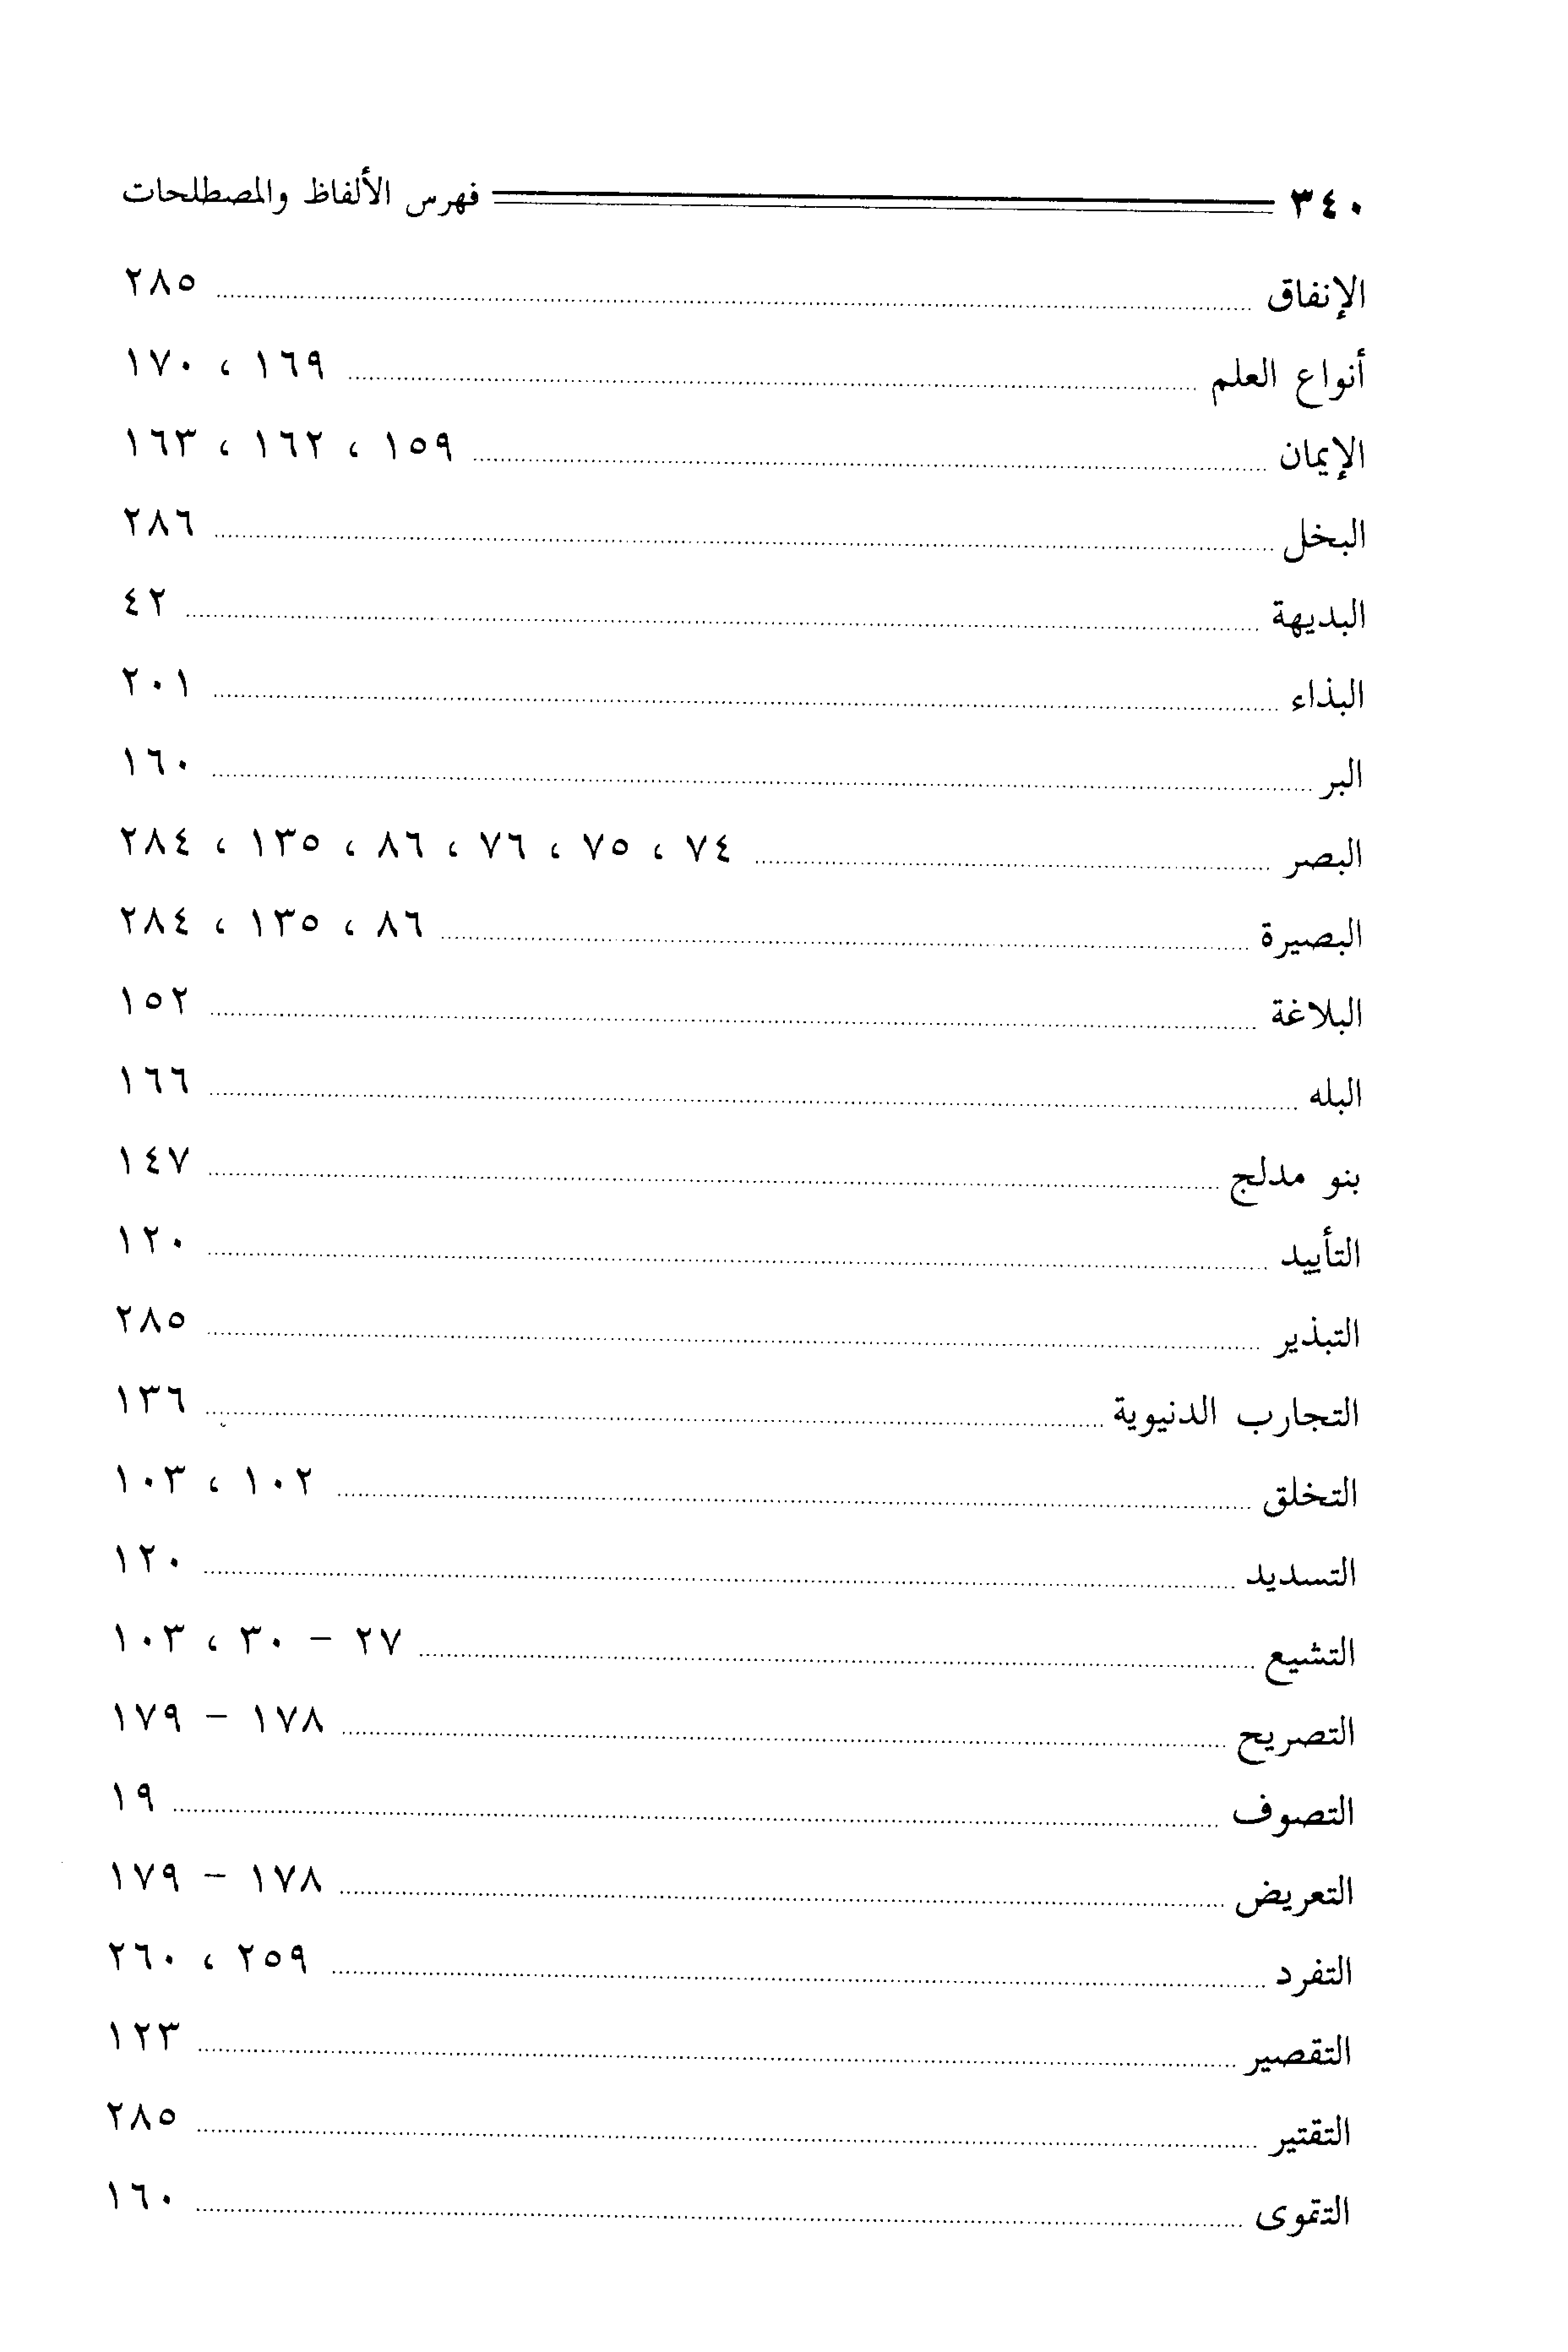 ٣٤٠ فهرس الألفاظ والمصطلحات
الإنفاق ٢٨٥
أنواع العلم ١٦٩ ، ١٧٠
الإيمان ١٥٩ ، ١٦٢ ، ١٦٣
البخل ٢٨٦
البديهة ٤٢
البذاء ٢٠١
البر ١٦٠
البصر ٧٤ ، ٧٥ ، ٧٦ ، ٨٦ ، ١٣٥ ، ٢٨٤
البصيرة ٨٦ ، ١٣٥ ، ٢٨٤
البلاغة ١٥٢
البله ١٦٦
بنو مدلج ١٤٧
التأييد ١٢٠
التبذير ٢٨٥
التجارب الدنيوية ١٣٦
التخلق ١٠٢ ، ١٠٣
التسديد ١٢٠
التشيع ٢٧ - ٣٠ ، ١٠٣
التصريح ١٧٨ - ١٧٩
التصوف ١٩
التعريض ١٧٨ - ١٧٩
التفرد ٢٥٩ ، ٢٦٠
التقصير ١٢٣
التقتير ٢٨٥
التقوى ١٦٠